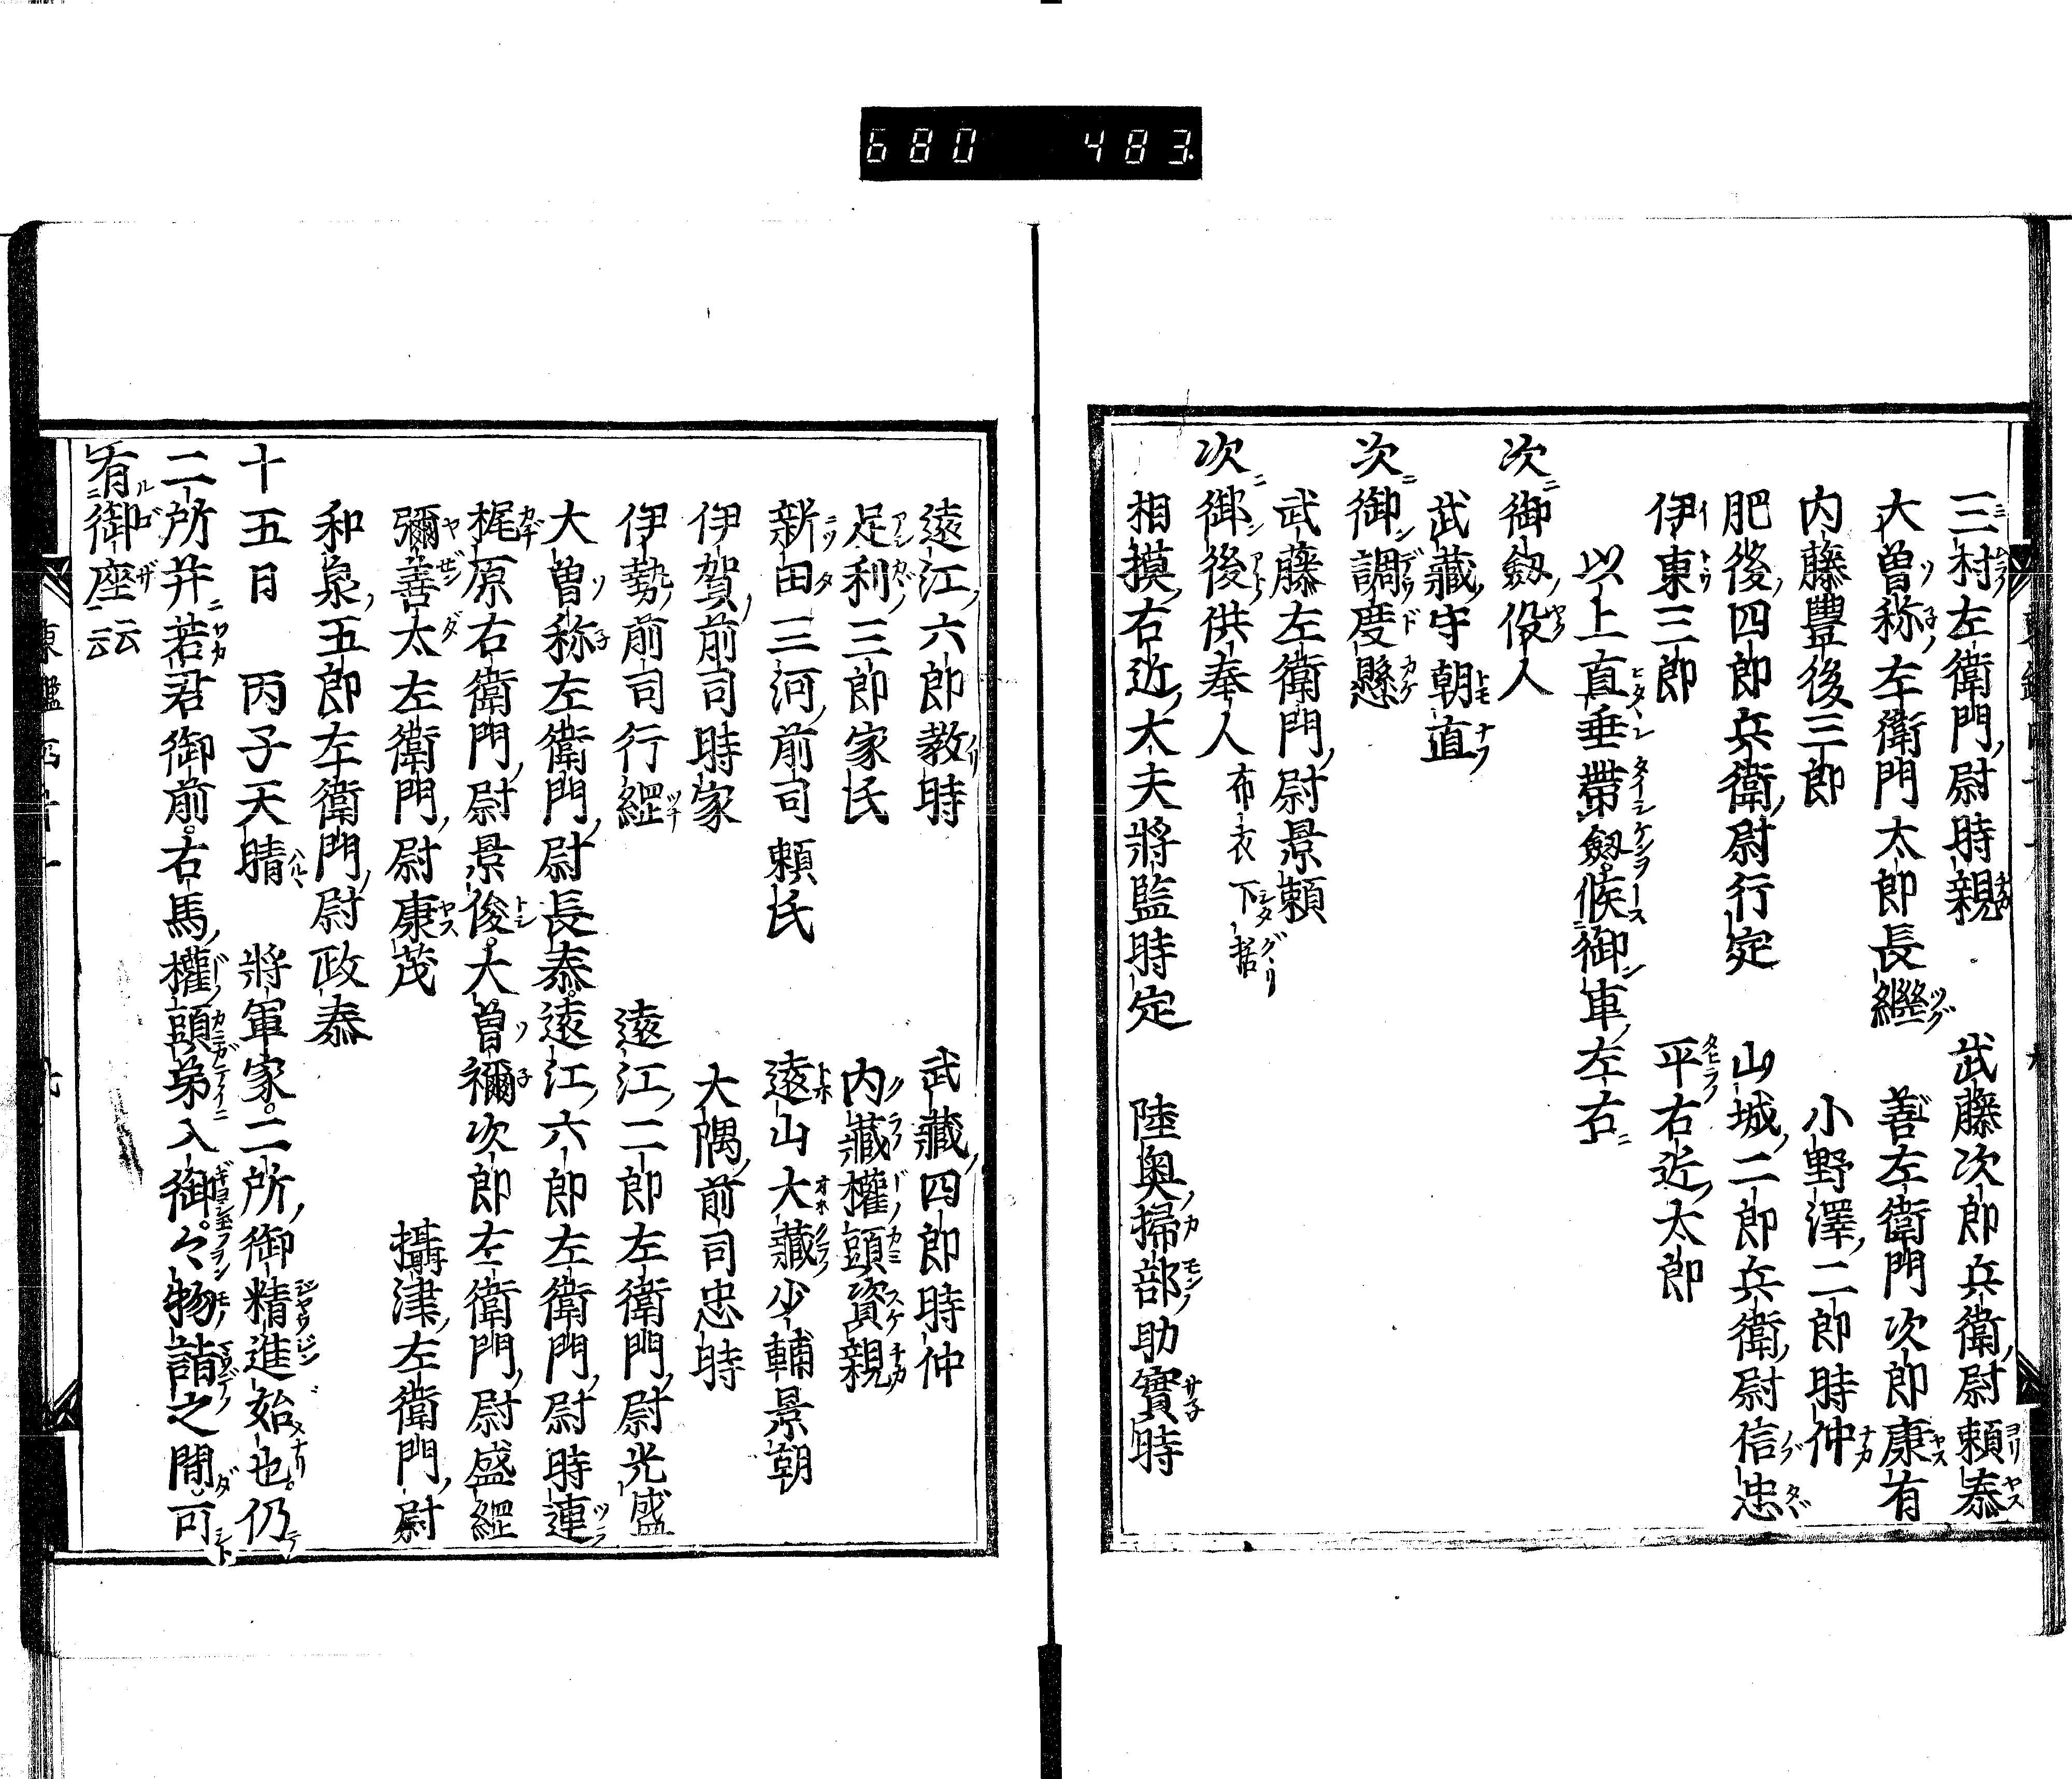 680 483
三村左衛門尉時親 武藤次郎兵衛尉頼泰
大曽称左衛門太郎長継 善左衛門次郎康有
内藤豊後三郎 小野澤二郎時仲
肥後四郎兵衛尉行定 山城二郎兵衛尉信忠
伊東三郎 平右近太郎
以上直垂帶劔候御車左右
次御劔役人
武藏守朝直
次御調度懸
武藤左衛門尉景頼
次御後供奉人 布衣下括
相摸右近大夫將監時定 陸奥掃部助實時
遠江六郎教時 武藏四郎時仲
足利三郎家氏 内藏權頭資親
新田三河前司頼氏 遠山大藏少輔景朝
伊賀前司時家 大隅前司忠時
伊勢前司行綱 遠江二郎左衛門尉光盛
大曽称左衛門尉長泰 遠江六郎左衛門尉時連
梶原右衛門尉景俊 大曽禰次郎左衛門尉盛經
彌善太左衛門尉康茂 攝津左衛門尉
和泉五郎左衛門尉政泰
十五日 丙子天晴 將軍家二所御精進始也仍
二所幷若君御前右馬權頭弟入御々物詣之間可
有御座云云